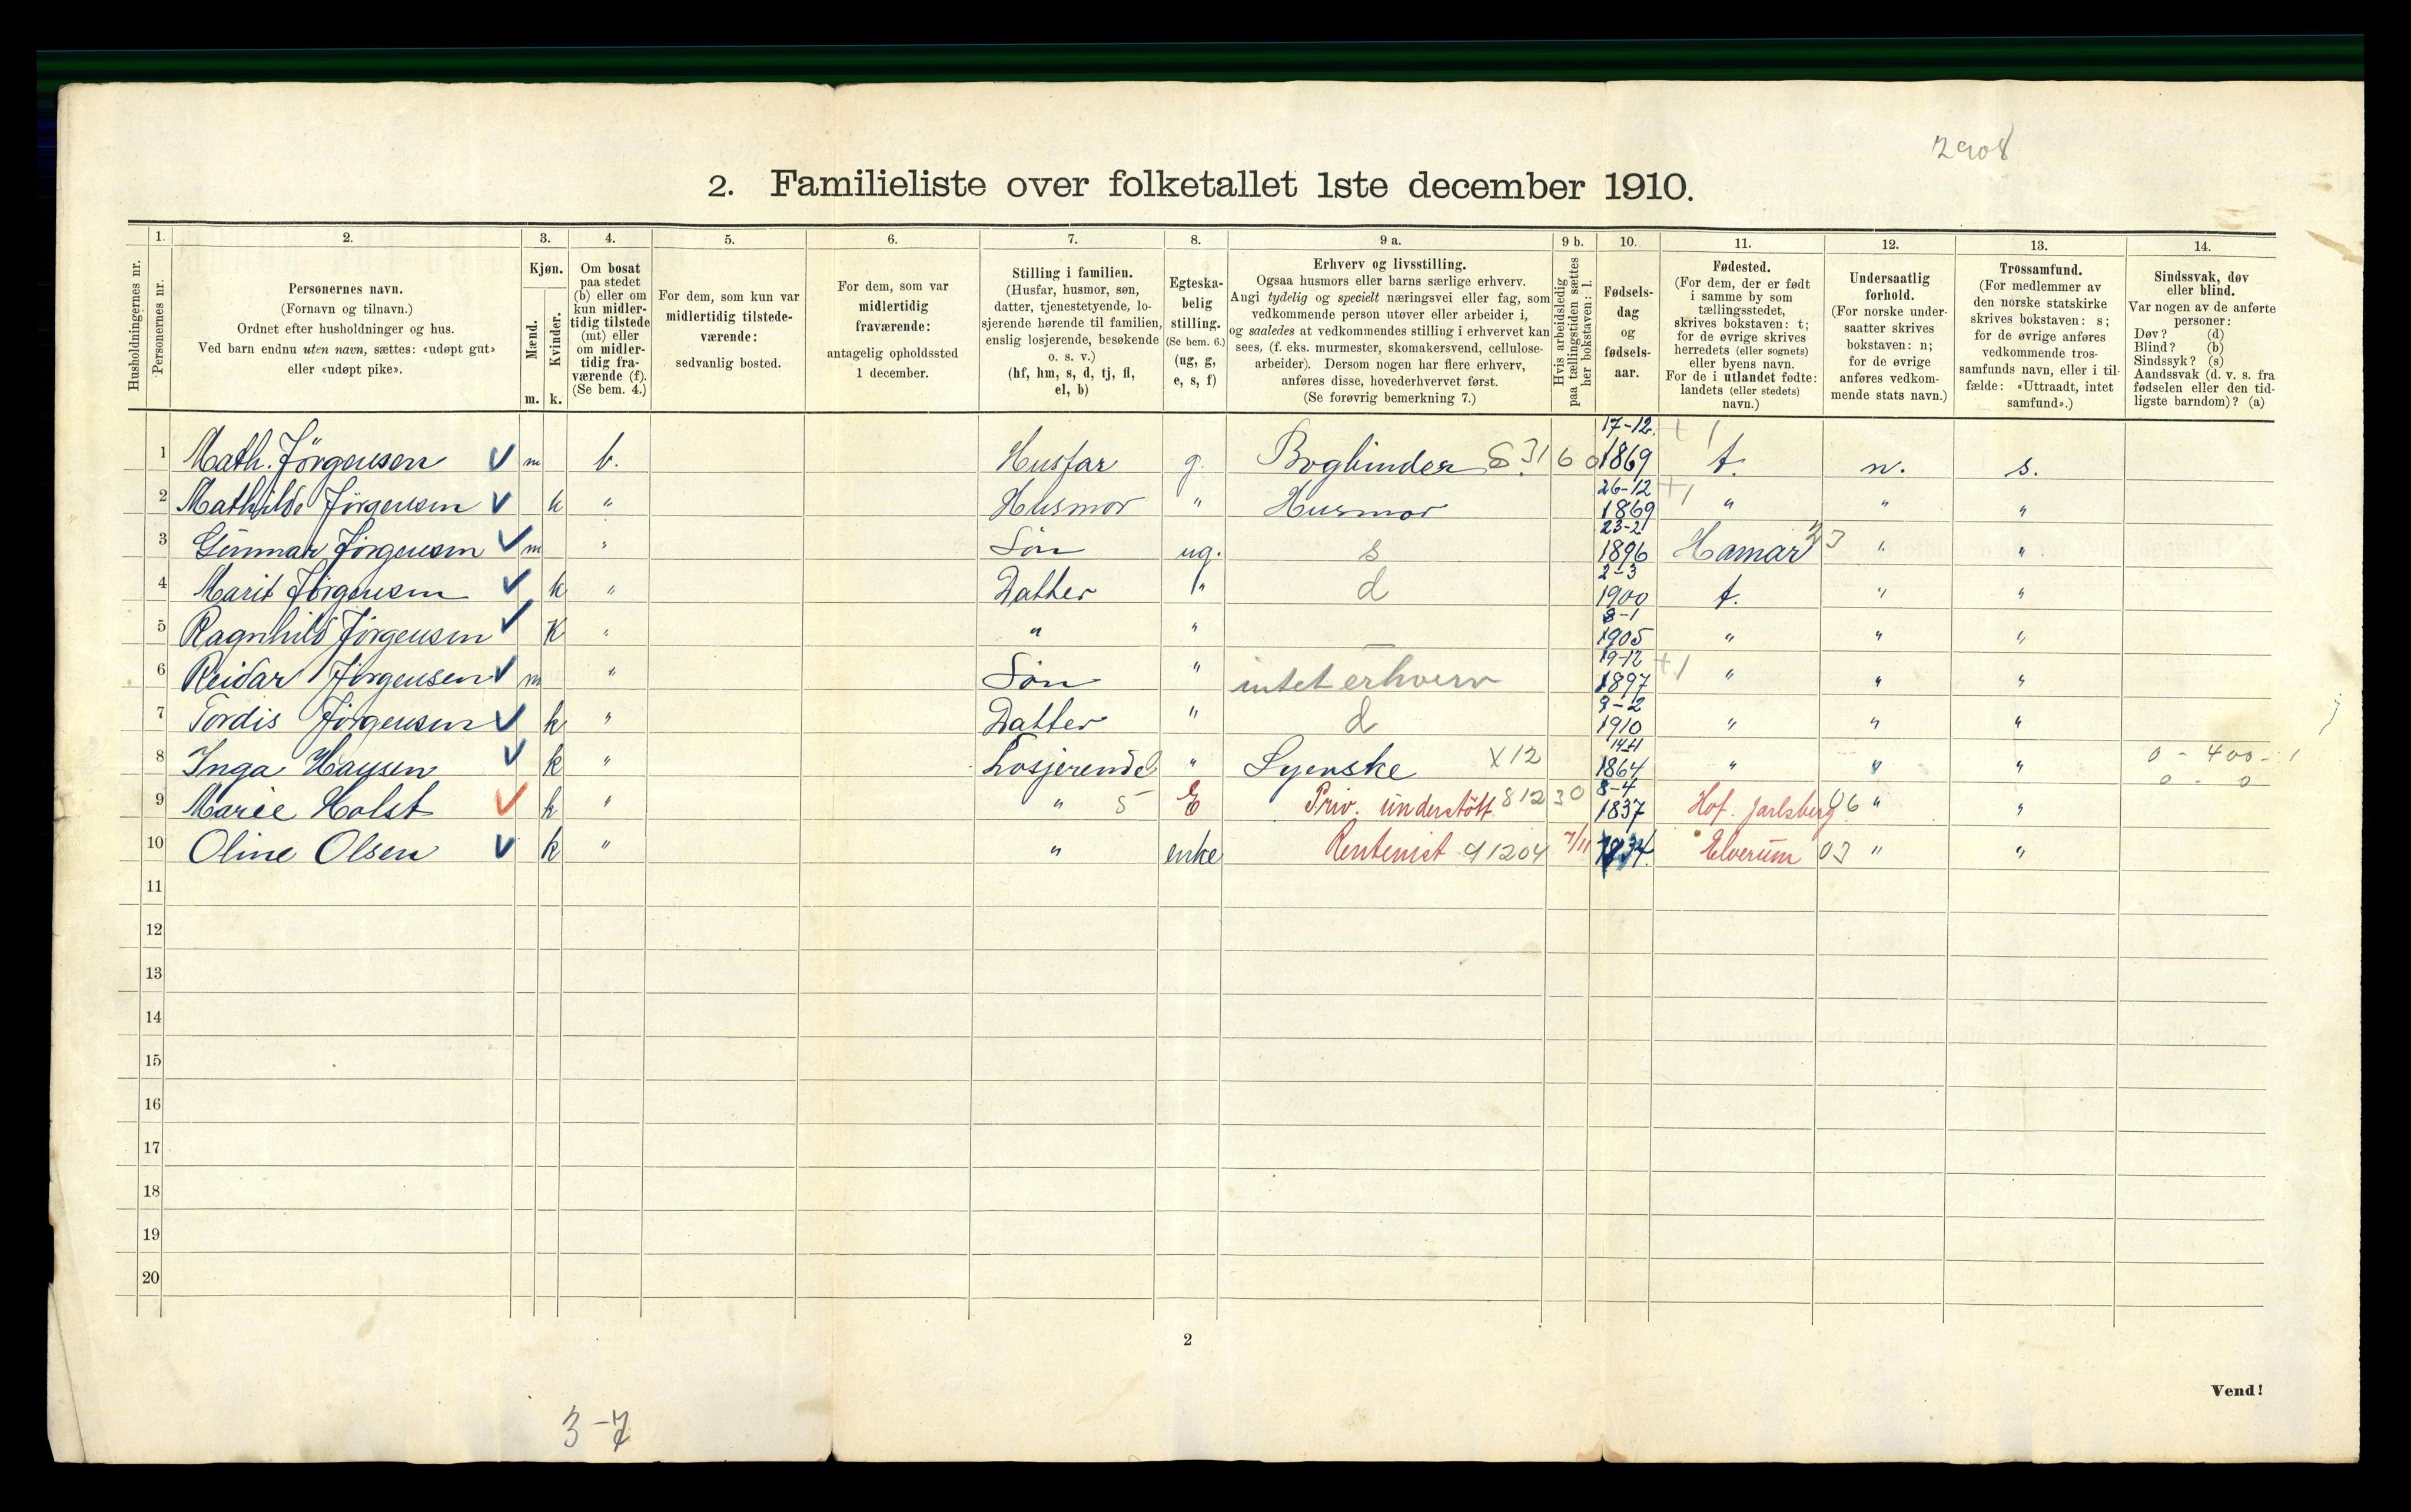 2908
2. Familieliste over folketallet 1ste december 1910.
1. 2. 3. 4. 5. 6. 7. 8. 9 a. 9 b. 10. 11. 12. 13. 14.
Husholdningernes nr.
Personernes nr.
Personernes navn.
(Fornavn og tilnavn.)
Ordnet efter husholdninger og hus.
Ved barn endnu uten navn, sættes: «udøpt gut»
eller «udøpt pike».
Kjøn.
Mænd.
Kvinder.
m. k.
Om bosat
paa stedet
(b) eller om
kun midler-
tidig tilstede
(mt) eller
om midler-
tidig fra-
værende (f).
(Se bem. 4.)
For dem, som kun var
midlertidig tilstede-
værende:
sedvanlig bosted.
For dem, som var
midlertidig
fraværende:
antagelig opholdssted
1 december.
Stilling i familien.
(Husfar, husmor, søn,
datter, tjenestetyende, lo-
sjerende hørende til familien,
enslig losjerende, besøkende
o. s. v.)
(hf, hm, s, d, tj, fl,
el, b)
Egteska-
belig
stilling.
(Se bem. 6.)
(ug, g,
e, s, f)
Erhverv og livsstilling.
Ogsaa husmors eller barns særlige erhverv.
Angi tydelig og specielt næringsvei eller fag, som
vedkommende person utøver eller arbeider i,
og saaledes at vedkommendes stilling i erhvervet kan
sees, (f. eks. murmester, skomakersvend, cellulose-
arbeider). Dersom nogen har flere erhverv,
anføres disse, hovederhvervet først.
(Se forøvrig bemerkning 7.)
Hvis arbeidsledig
paa tællingstiden sættes
her bokstaven: l.
Fødsels-
dag
og
fødsels-
aar.
Fødested.
(For dem, der er født
i samme by som
tællingsstedet,
skrives bokstaven: t;
for de øvrige skrives
herredets (eller sognets)
eller byens navn.
For de i utlandet fødte:
landets (eller stedets)
navn.)
Undersaatlig
forhold.
(For norske under-
saatter skrives
bokstaven: n;
for de øvrige
anføres vedkom-
mende stats navn.)
Trossamfund.
(For medlemmer av
den norske statskirke
skrives bokstaven: s;
for de øvrige anføres
vedkommende tros-
samfunds navn, eller i til-
fælde: «Uttraadt, intet
samfund».)
Sindssvak, døv
eller blind.
Var nogen av de anførte
personer:
Døv? (d)
Blind? (b)
Sindssyk? (s)
Aandssvak (d. v. s. fra
fødselen eller den tid-
ligste barndom)? (a)
1 Math. Jörgensen m b. Husfar g. Bogbinder 83160 17-12. 1869 +1 t. n. s.
2 Mathilde Jörgensen k " Husmor " Husmor 26-12 1869 +1 " " "
3 Gunnar Jörgensen m " Sön ug. s 23-2 1896 Hamar 23 " "
4 Marit Jörgensen k " Datter " d 2-3 1900 t. " "
5 Ragnhild Jörgensen K " " " 8-1 1905 " " "
6 Reidar Jörgensen m " Sön " intet erhverv 19-12 1897 +1 " " "
7 Tordis Jörgensen k " Datter " d 9-2 1910 " " "
8 Inga Hansen k " Losjerende " Syerske X12 1864 " " " 0 - 400 - 1
9 Marie Holst k " " 5 E Priv. understött 81230 8-4 1837 Hof. Jarlsberg 06 " " 0 - 0
10 Oline Olsen k " " enke Rentenist 91204 7/11 1834. Elverum 03 " "
11
12
13
14
15
16
17
18
19
20
2
Vend!
3-7